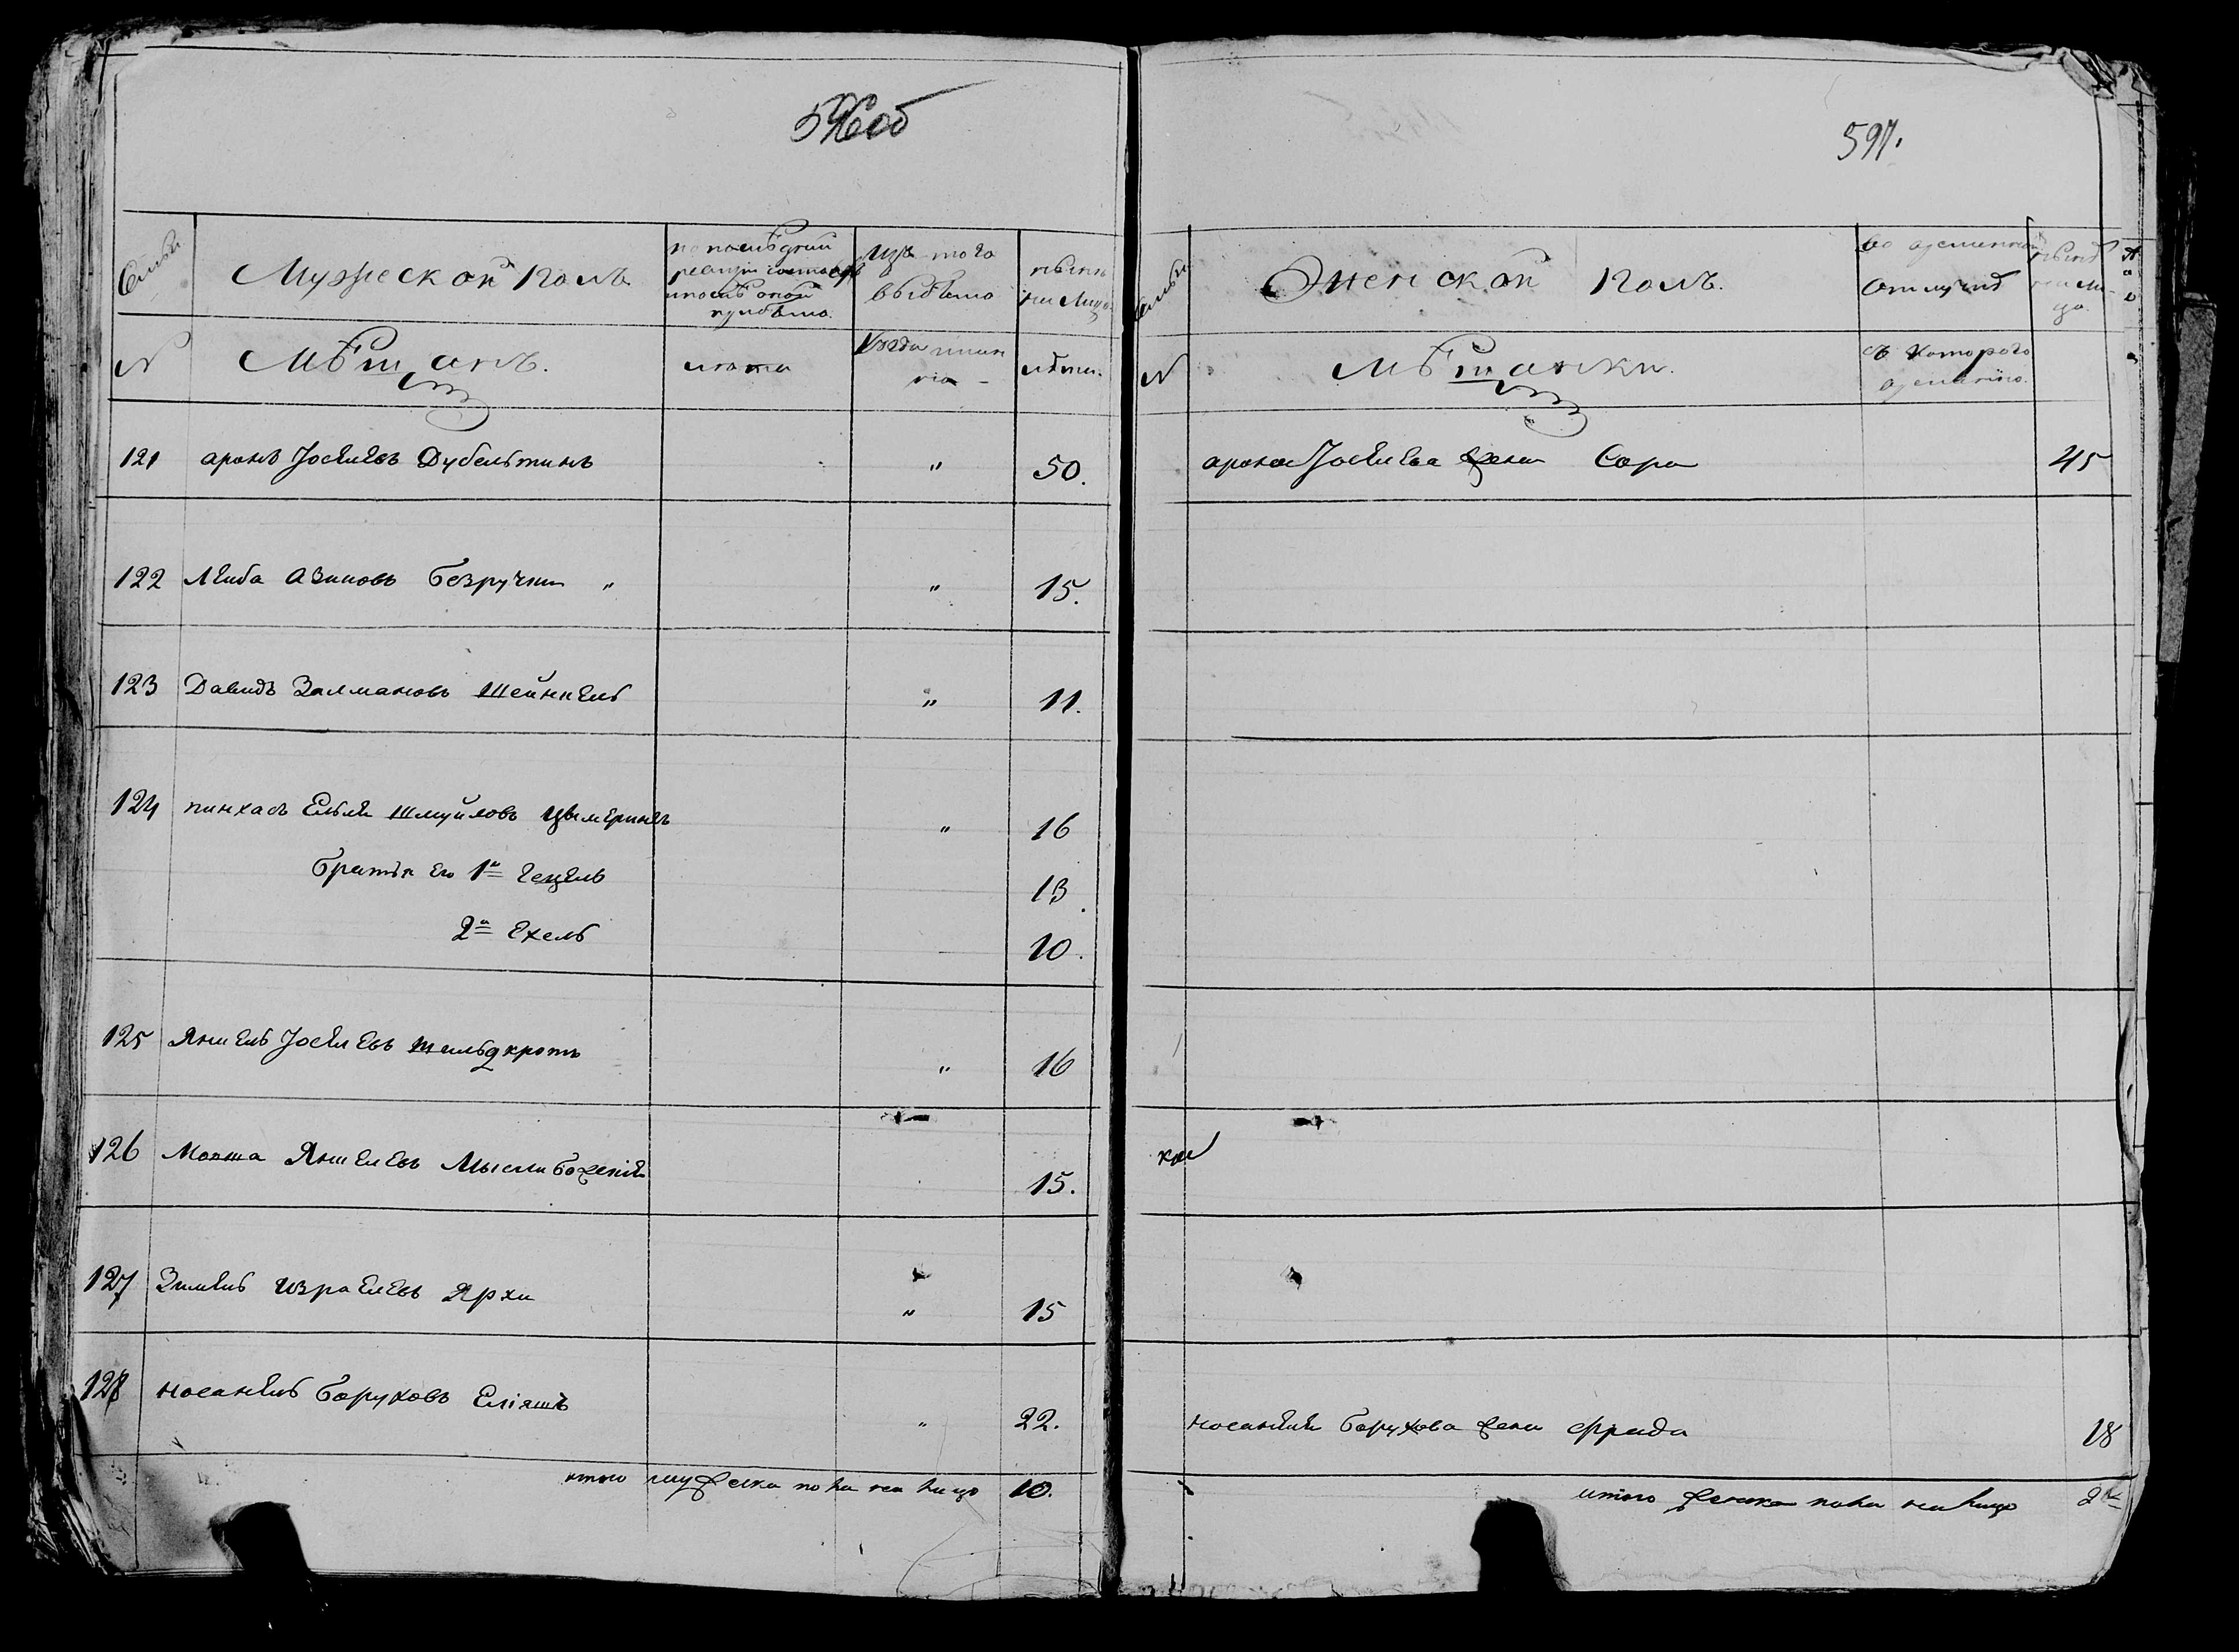 596об
Семьи
Мужеской полъ
по последней ревизіи состояло и после оной прибыло
Изъ того выбыло
ныне на лицо
N
Мѣщанъ.
лѣта
Когда именно
лѣта.
121 аронъ Іоселевъ Дубельтинъ " 50.
122 Лейба Азиковъ Безручки " " 15.
123 Давидъ Залмановъ Шейнкель " 11.
124 пинхасъ Ельли Шмуйловъ Цымеринъ " 16
братья его 1й Гецель 13
2й Ехель 10.
125 Янкель Іоселевъ Шильдкротъ " 16
126 Мошка Янкелевъ Мыслибоженій 15.
127 Зимель Израелевъ Ярхи " 15
128 носанель Боруховъ Еліяшъ " 22.
итого мужеска пола на лицо 10.
597.
Семьи
Женской полъ.
Во временной отлучкѣ
ныне на лицо
N
Мѣщанки.
съ котораго времени.
арона Іоселева жена Сора 45
носанеля Борухова жена Фрейда 18
итого женска пола на лицо 2